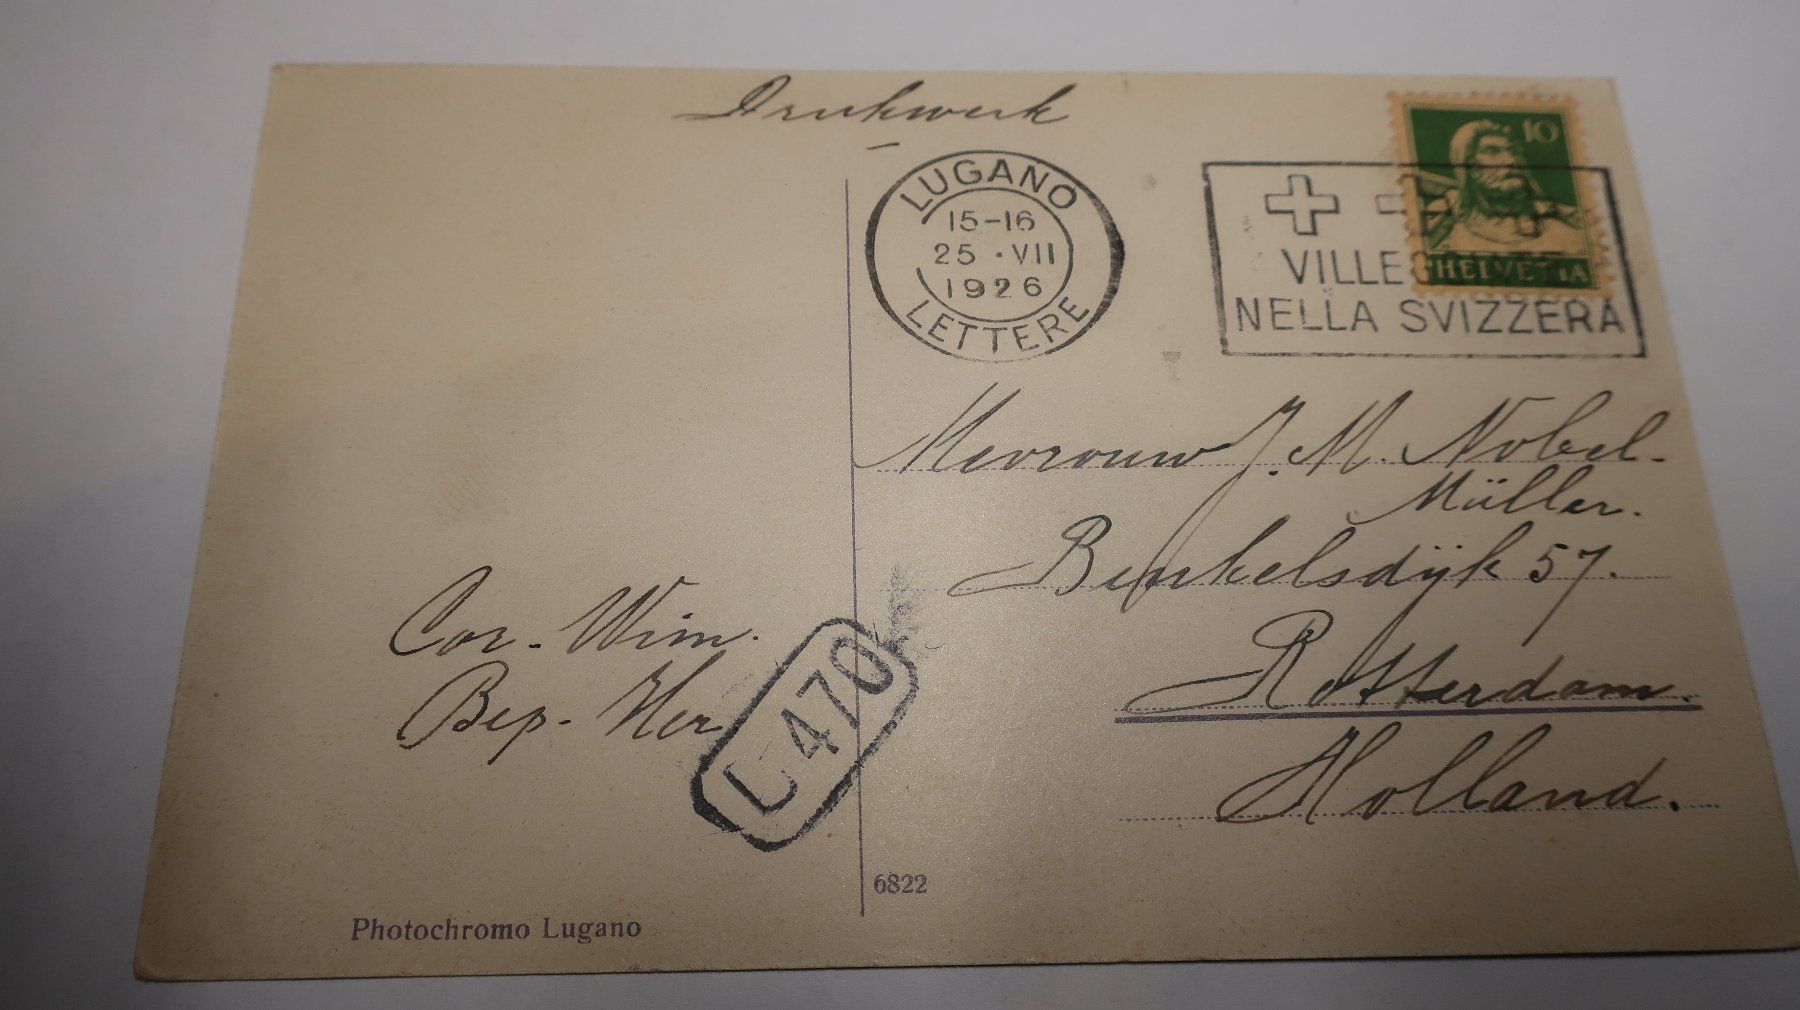 Drukwerk
LUGANO
15-16
25 · VII
1926
LETTERE
10
HELVETIA
VILLEG
NELLA SVIZZERA
Mevrouw J. M. Nobel-
Müller.
Beukelsdijk 57.
Rotterdam.
Holland.
Cor - Wim.
Bep - Her
L 470
6822
Photochromo Lugano